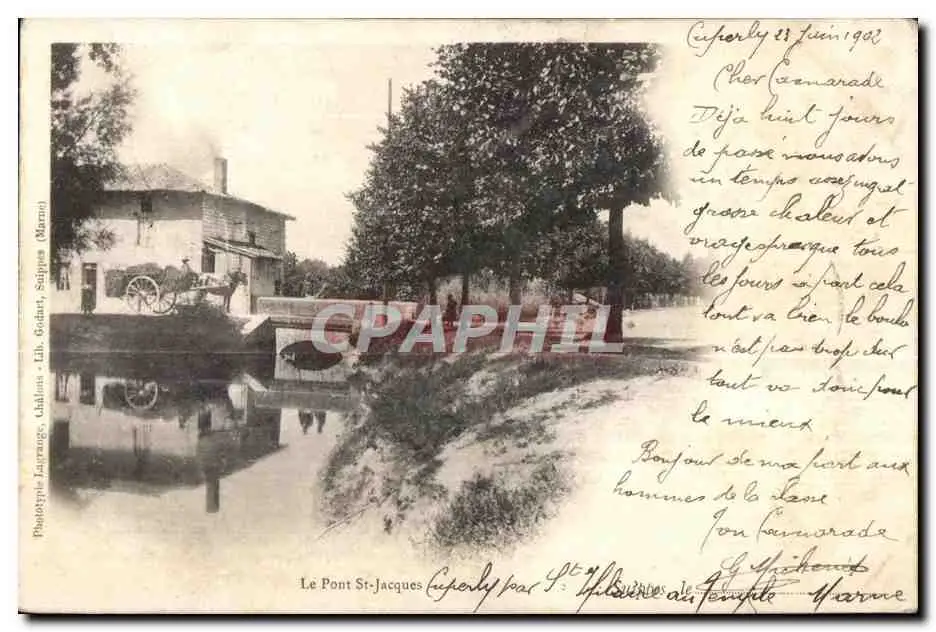 Cuperly 23 Juin 1902
Cher Camarade
Déja huit jours
de passé nous avons
un temps assez ingal
grosse chaleur et
orages presque tous
les jours a part cela
tout va bien le boulo
n'est pas trop dur
tout va donc pour
le mieux
Bonjour de ma part aux
hommes de la classe
Ton Camarade
G
CPAPHIL
Phototypie Lagrange, Châlons - Lib. Godart, Suippes (Marne)
Le Pont St-Jacques
Suippes, le
Cuperly par St Hilaire au Temple Marne